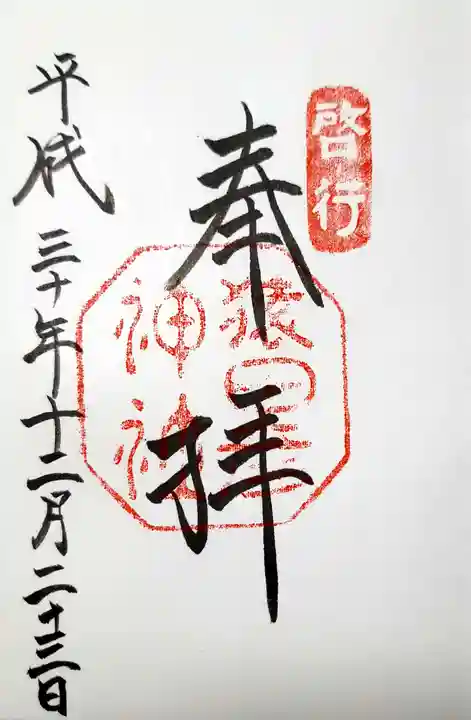 啓行
奉拝
猿田彦神社
平成三十年十二月二十三日